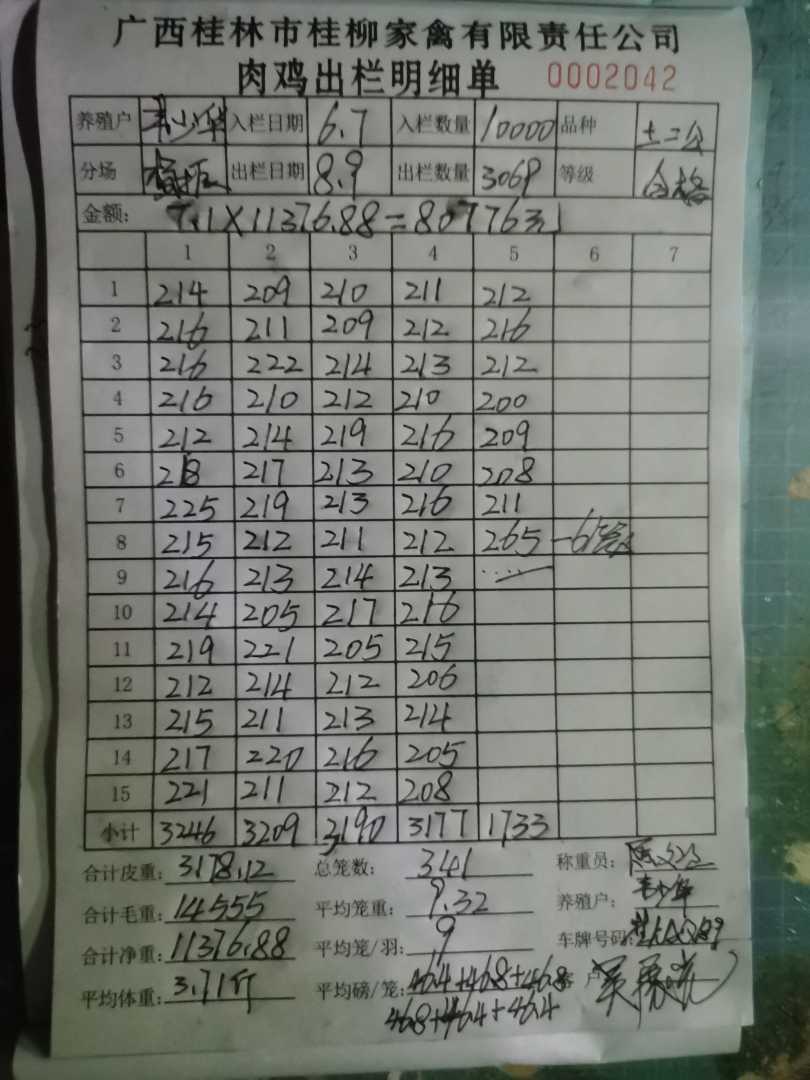 广西桂林市桂柳家禽有限责任公司
肉鸡出栏明细单 0002042
养殖户 韦少华 入栏日期 6.7 入栏数量 10000 品种 土二公
分场 出栏日期 8.9 出栏数量 3069 等级 合格
金额: 7.1×11376.88=80776元
1 2 3 4 5 6 7
1 214 209 210 211 212
2 216 211 209 212 216
3 216 222 214 213 212
4 216 210 212 210 200
5 212 214 219 216 209
6 218 217 213 210 208
7 225 219 213 216 211
8 215 212 211 212 265 -6笼
9 216 213 214 213
10 214 205 217 216
11 219 221 205 215
12 212 214 212 206
13 215 211 213 214
14 217 220 216 205
15 221 211 212 208
小计 3246 3209 3190 3177 1733
合计皮重: 3178.12 总笼数: 341 称重员:
合计毛重: 14555 平均笼重: 9.32 养殖户: 韦少华
合计净重: 11376.88 平均笼/羽: 9 车牌号码:
平均体重: 3.71斤 平均磅/笼: 46.4+46.8+46.8 客户
46.8+46.4+46.4